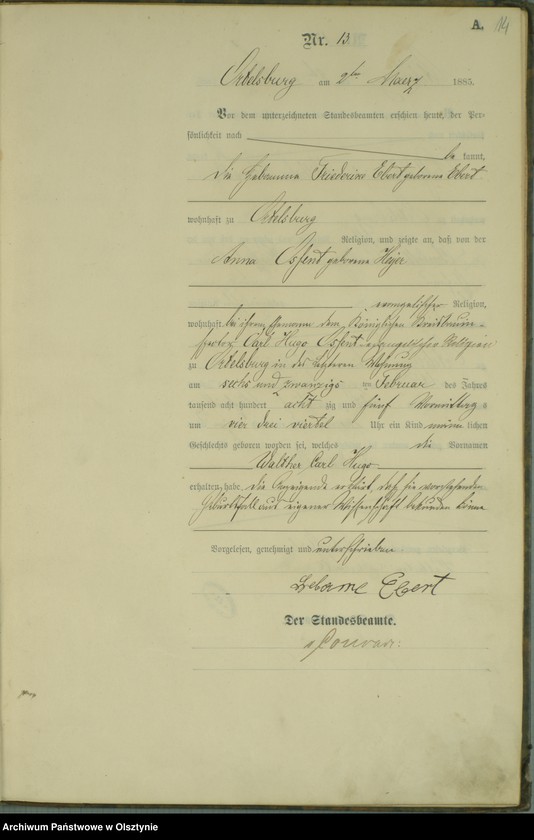 A. 14
Nr. 13.
Ortelsburg am 2ten Maerz 1885.
Vor dem unterzeichneten Standesbeamten erschien heute, der Per-
sönlichkeit nach
be kannt,
die Hebamme Friederike Ebert geborene Ebert
wohnhaft zu Ortelsburg
Religion, und zeigte an, daß von der
Anna Ossent geborene
evangelischer Religion,
wohnhaft bei ihrem Ehemann dem Königlichen Kreisbauin-
spector Carl Hugo Ossent evangelischer Religion
zu Ortelsburg in der letzteren Wohnung
am sechs und zwanzigs ten Februar des Jahres
tausend acht hundert acht zig und fünf Vormittag s
um vier drei viertel Uhr ein Kind männ lichen
Geschlechts geboren worden sei, welches die Vornamen
Walther Carl Hugo
erhalten habe. Die Anzeigende erklärt, daß sie vorstehenden
Geburtsfall aus eigener Wissenschaft bekunden könne
Vorgelesen, genehmigt und unterschrieben
Ebert
Der Standesbeamte.
Archiwum Państwowe w Olsztynie